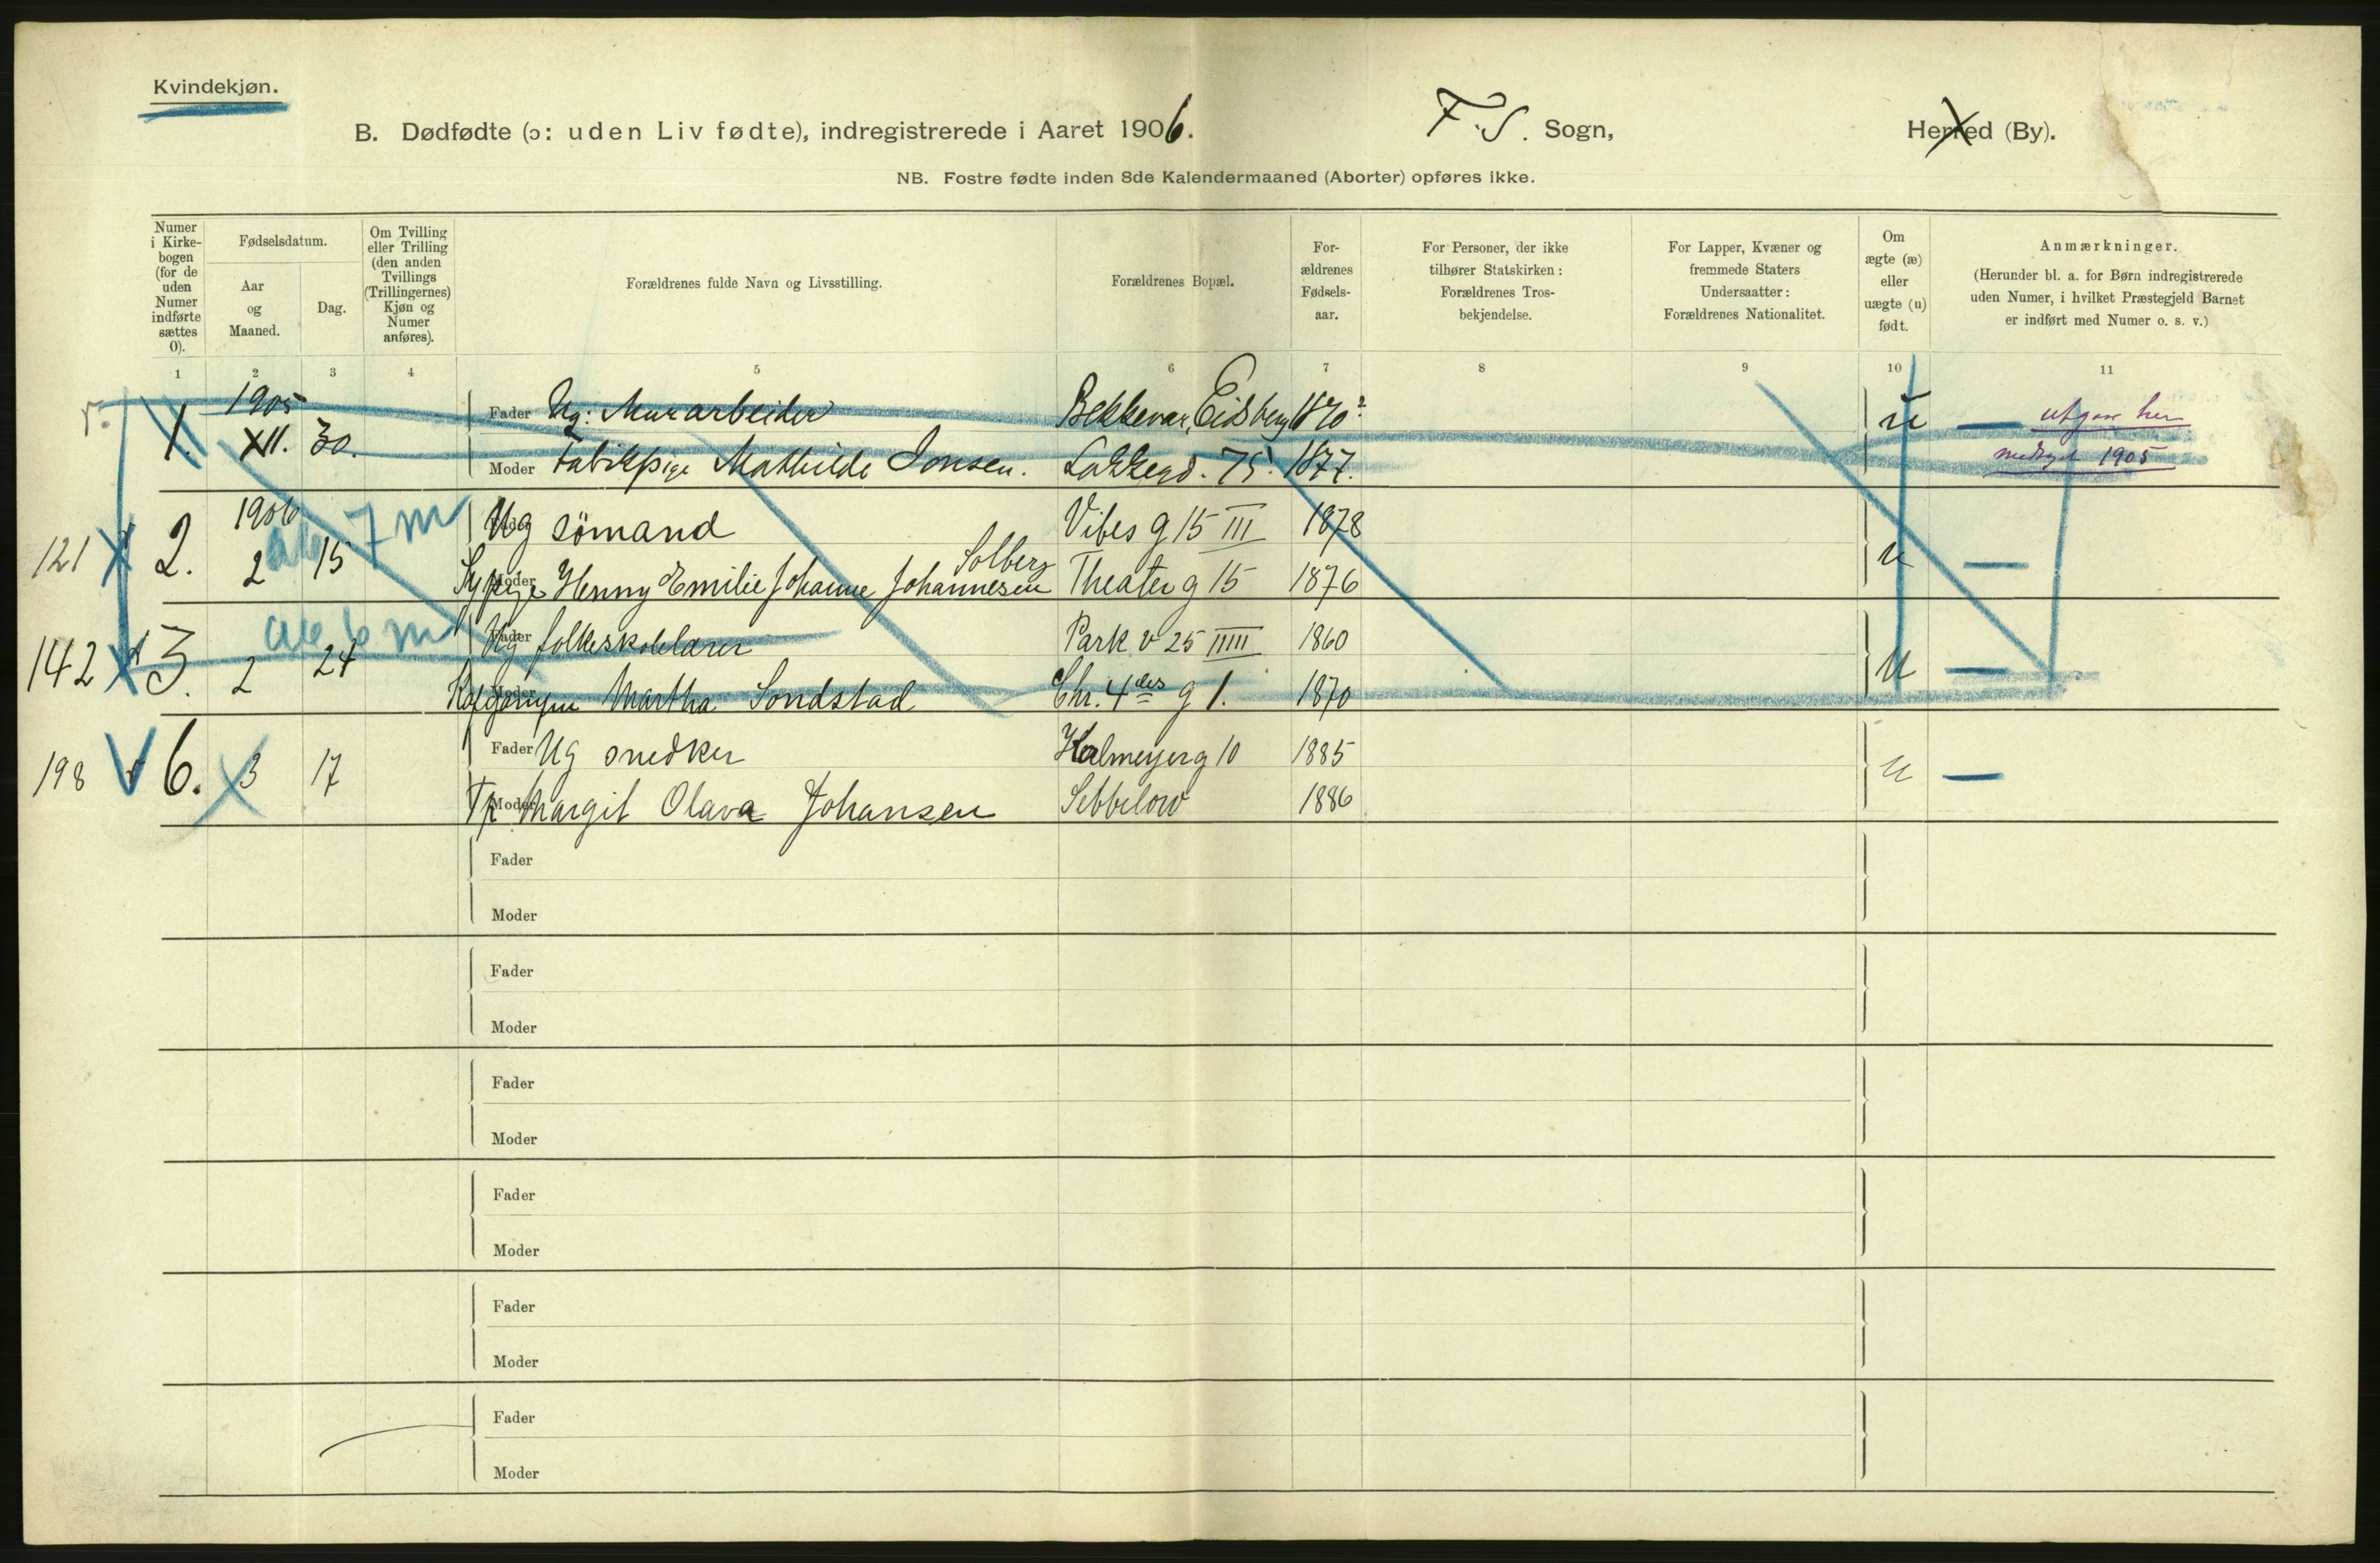 Kvindekjøn.
B. Dødfødte (ɔ: uden Liv fødte), indregistrerede i Aaret 1906.
F. S. Sogn,
Herred (By).
NB. Fostre fødte inden 8de Kalendermaaned (Aborter) opføres ikke.
Numer i Kirkebogen (for de uden Numer indførte sættes 0).
Fødselsdatum.
Aar og Maaned.
Dag.
Om Tvilling eller Trilling (den anden Tvillings (Trillingernes) Kjøn og Numer anføres).
Forældrenes fulde Navn og Livsstilling.
Forældrenes Bopæl.
Forældrenes Fødselsaar.
For Personer, der ikke tilhører Statskirken: Forældrenes Trosbekjendelse.
For Lapper, Kvæner og fremmede Staters Undersaatter: Forældrenes Nationalitet.
Om ægte (æ) eller uægte (u) født.
Anmærkninger.
(Herunder bl. a. for Børn indregistrerede uden Numer, i hvilket Præstegjeld Barnet er indført med Numer o. s. v.)
1 2 3 4 5 6 7 8 9 10 11
1. 1905 XII. 30.
Fader Ug: Murarbeider Bekkevar, Eidsberg 1870? u —
Moder Fabrikpige Mathilde Jonsen. Lakkegd. 75. 1877.
utgaar her
1905
121 2. 1906 2 15 ab 7 m
Fader Ug sömand Vibes g 15 III 1878 u —
Solberg
Moder Sypige Henny Emilie Johanne Johannesen Theater g 15 1876
142 3. 2 24 ab 6 m
Fader Ug folkeskolelærer Park v 25 IIII 1860 u —
Moder Martha Sondstad Chr. 4des g 1. 1870
198 6. 3 17
Fader Ug snedker Holmeyerg 10 1885 u —
Moder Tp Margit Olava Johansen Sebbelow 1886
Fader
Moder
Fader
Moder
Fader
Moder
Fader
Moder
Fader
Moder
Fader
Moder